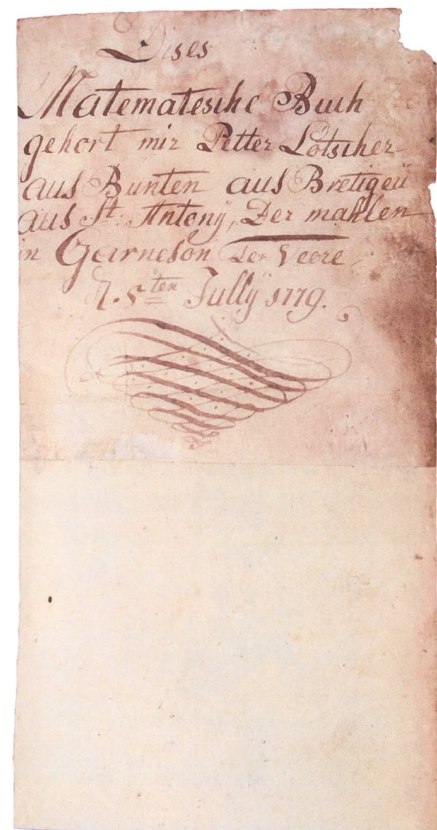 Dises
Matematesche Buch
gehört mir Petter Lötscher
aus Bunten aus Bretigeü
aus St. Antonÿ, Der mahlen
in Garneson Der Veere
d. 5ten Jullÿ 1779.